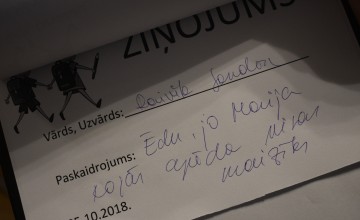 ZIŅOJUMS
Vārds, Uzvārds: Dāvis Sandor
Paskaidrojums: Ēdu, jo Marija
rajās apēda visas
maizītes
15.10.2018.